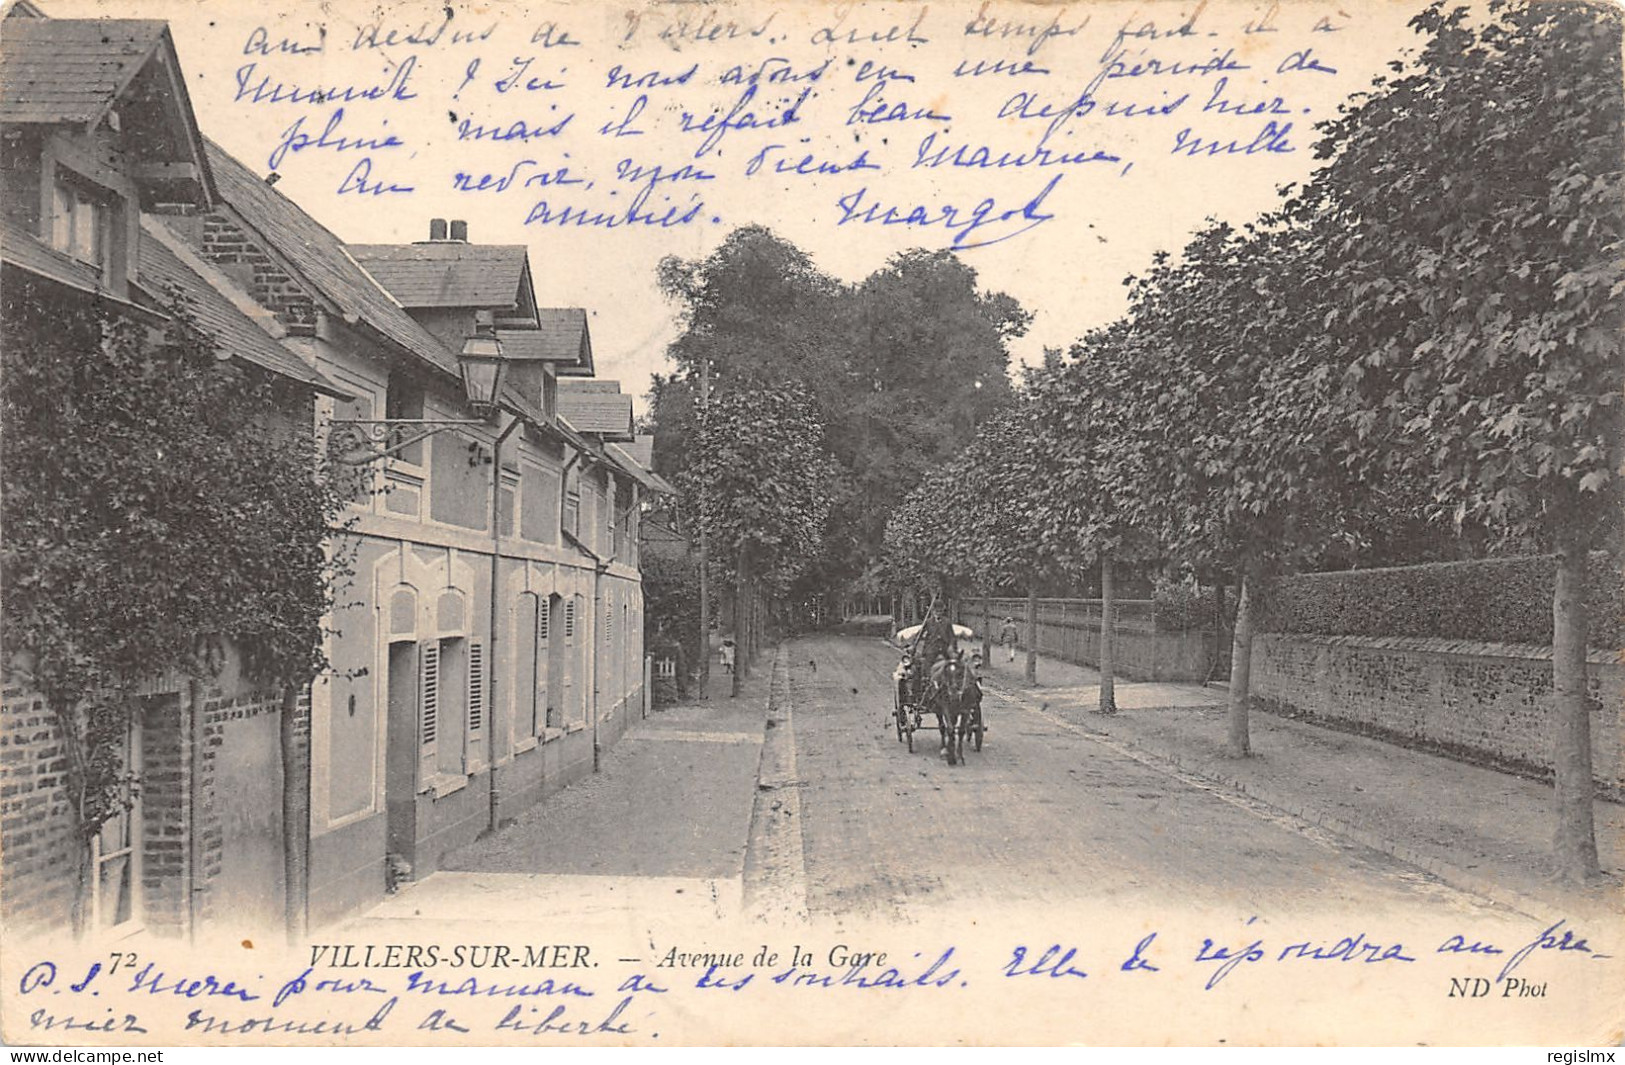 au dessus de Villers. Quel temps fait-il à
Munich ! Ici nous avons eu une période de
pluie, mais il refait beau depuis hier.
Au revoir, mon vieux Maurice, mille
amitiés. Margot
72 VILLERS-SUR-MER. — Avenue de la Gare
P.S. Merci pour maman de tes souhaits. Elle te répondra au pre-
ND Phot
mier moment de liberté.
regislmx
delcampe.net